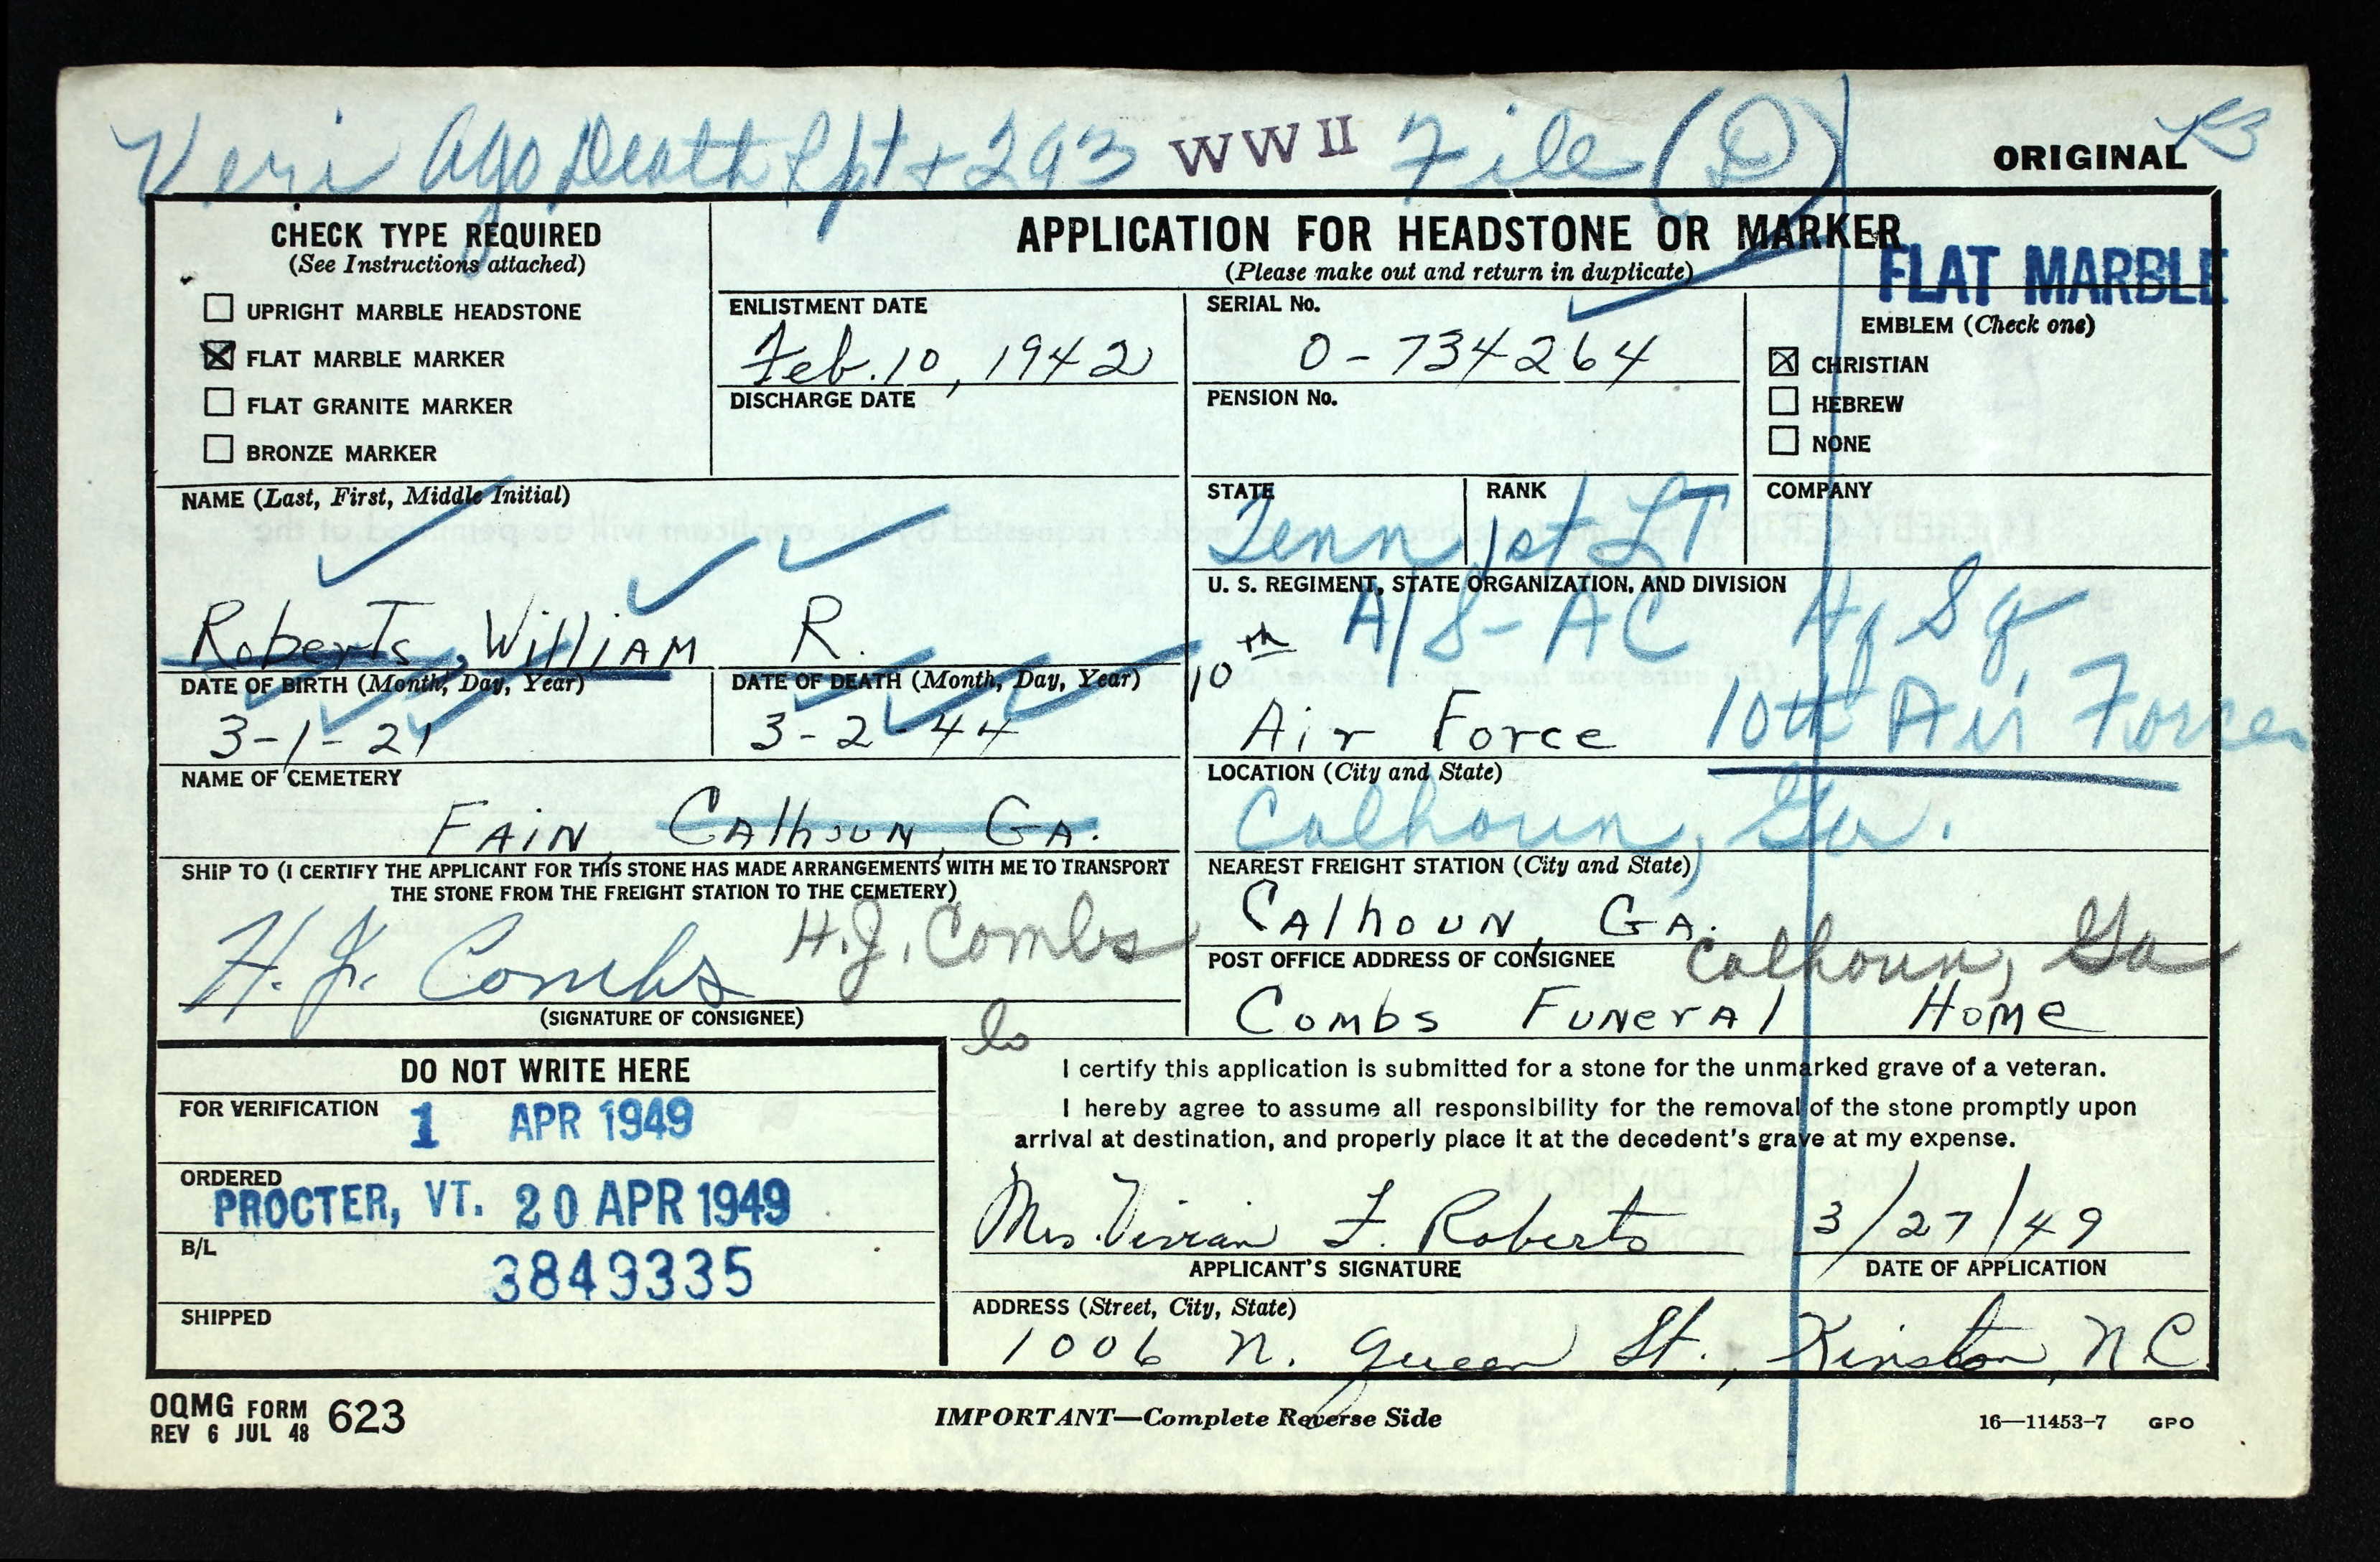 Veri Ago Death Rpt + 293 WW II File (D)
ORIGINAL
CHECK TYPE REQUIRED
(See Instructions attached)
☐ UPRIGHT MARBLE HEADSTONE
☒ FLAT MARBLE MARKER
☐ FLAT GRANITE MARKER
☐ BRONZE MARKER
APPLICATION FOR HEADSTONE OR MARKER
(Please make out and return in duplicate)
FLAT MARBLE
ENLISTMENT DATE
Feb. 10, 1942
DISCHARGE DATE
SERIAL No.
O-734264
PENSION No.
EMBLEM (Check one)
☒ CHRISTIAN
☐ HEBREW
☐ NONE
NAME (Last, First, Middle Initial)
Roberts, William R.
STATE
Tenn
RANK
1st LT
COMPANY
U. S. REGIMENT, STATE ORGANIZATION, AND DIVISION
A/S-AC Hq Sq
10th
Air Force 10th Air Force
DATE OF BIRTH (Month, Day, Year)
3-1-21
DATE OF DEATH (Month, Day, Year)
3-2-44
NAME OF CEMETERY
FAIN, CAlhoUN, GA.
LOCATION (City and State)
Calhoun, Ga.
SHIP TO (I CERTIFY THE APPLICANT FOR THIS STONE HAS MADE ARRANGEMENTS WITH ME TO TRANSPORT
THE STONE FROM THE FREIGHT STATION TO THE CEMETERY)
H. J. Combs H.J. Combs
(SIGNATURE OF CONSIGNEE)
NEAREST FREIGHT STATION (City and State)
CAlhoUN, GA.
POST OFFICE ADDRESS OF CONSIGNEE
Calhoun, Ga
Combs Funeral Home
DO NOT WRITE HERE
FOR VERIFICATION
1 APR 1949
ORDERED
PROCTER, VT. 20 APR 1949
B/L
3849335
SHIPPED
I certify this application is submitted for a stone for the unmarked grave of a veteran.
I hereby agree to assume all responsibility for the removal of the stone promptly upon
arrival at destination, and properly place it at the decedent's grave at my expense.
Mrs. Vivian F. Roberts 3/27/49
APPLICANT'S SIGNATURE
DATE OF APPLICATION
ADDRESS (Street, City, State)
1006 N. Queen St., Kinston, N C
OQMG FORM 623
REV 6 JUL 48
IMPORTANT—Complete Reverse Side
16—11453-7 GPO